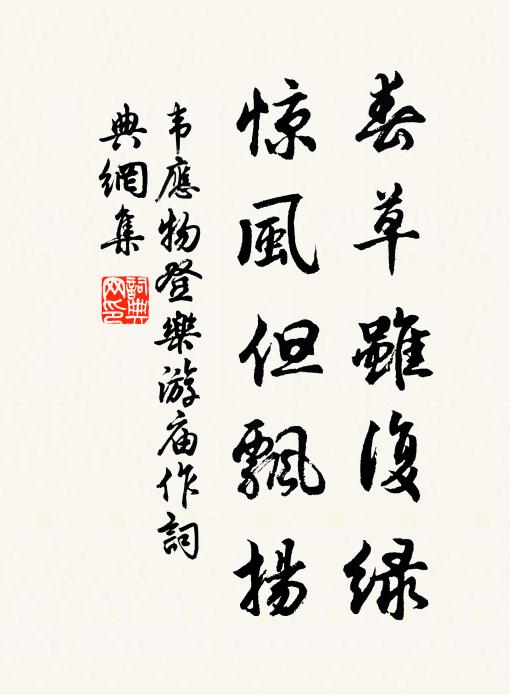 春草雖復緑
惊風但飄揚
韦應物登樂游庙作詞
典網集
詞典
网印